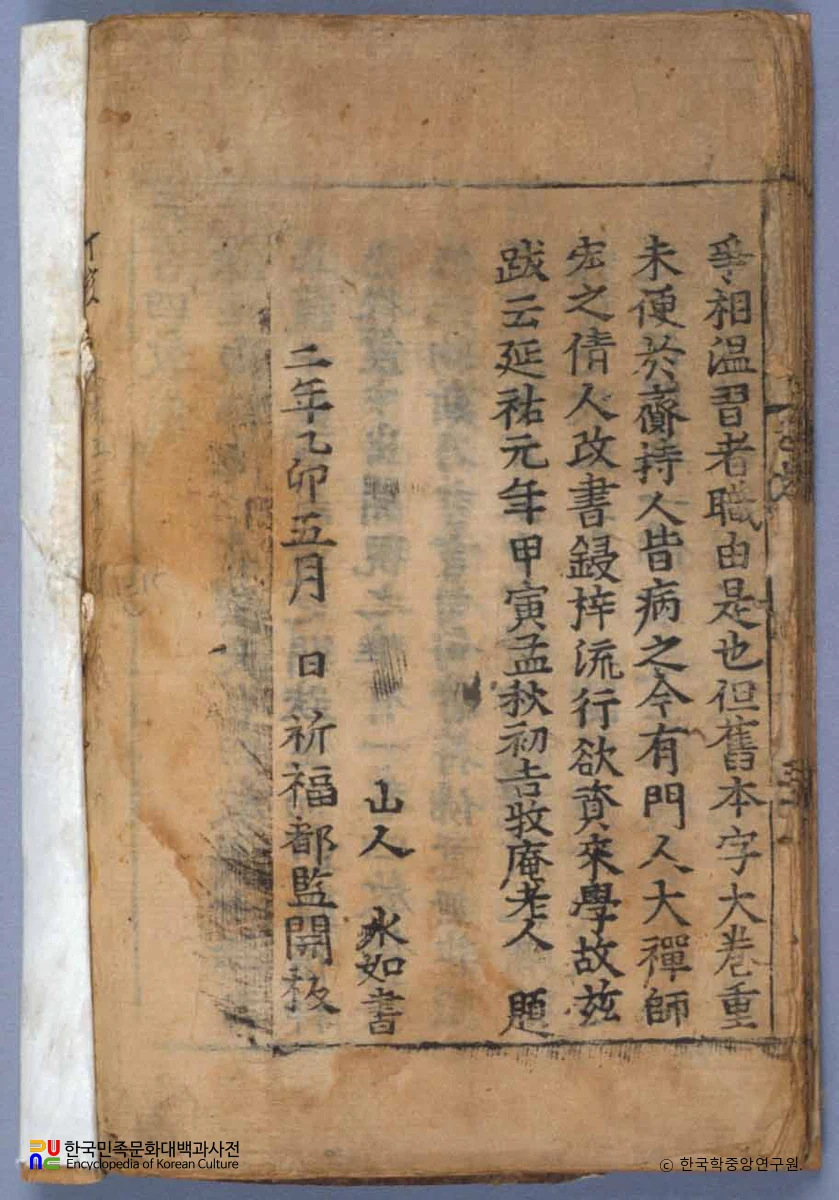 爭相温習者職由是也但舊本字大卷重
未便於齎持人皆病之今有門人大禪師
宏之倩人改書鋟梓流行欲資來學故玆
跋云延祐元年甲寅孟秋初吉牧庵老人 題
山人 永如書
二年乙卯五月 日祈福都監開板
한국민족문화대백과사전
Encyclopedia of Korean Culture
ⓒ 한국학중앙연구원